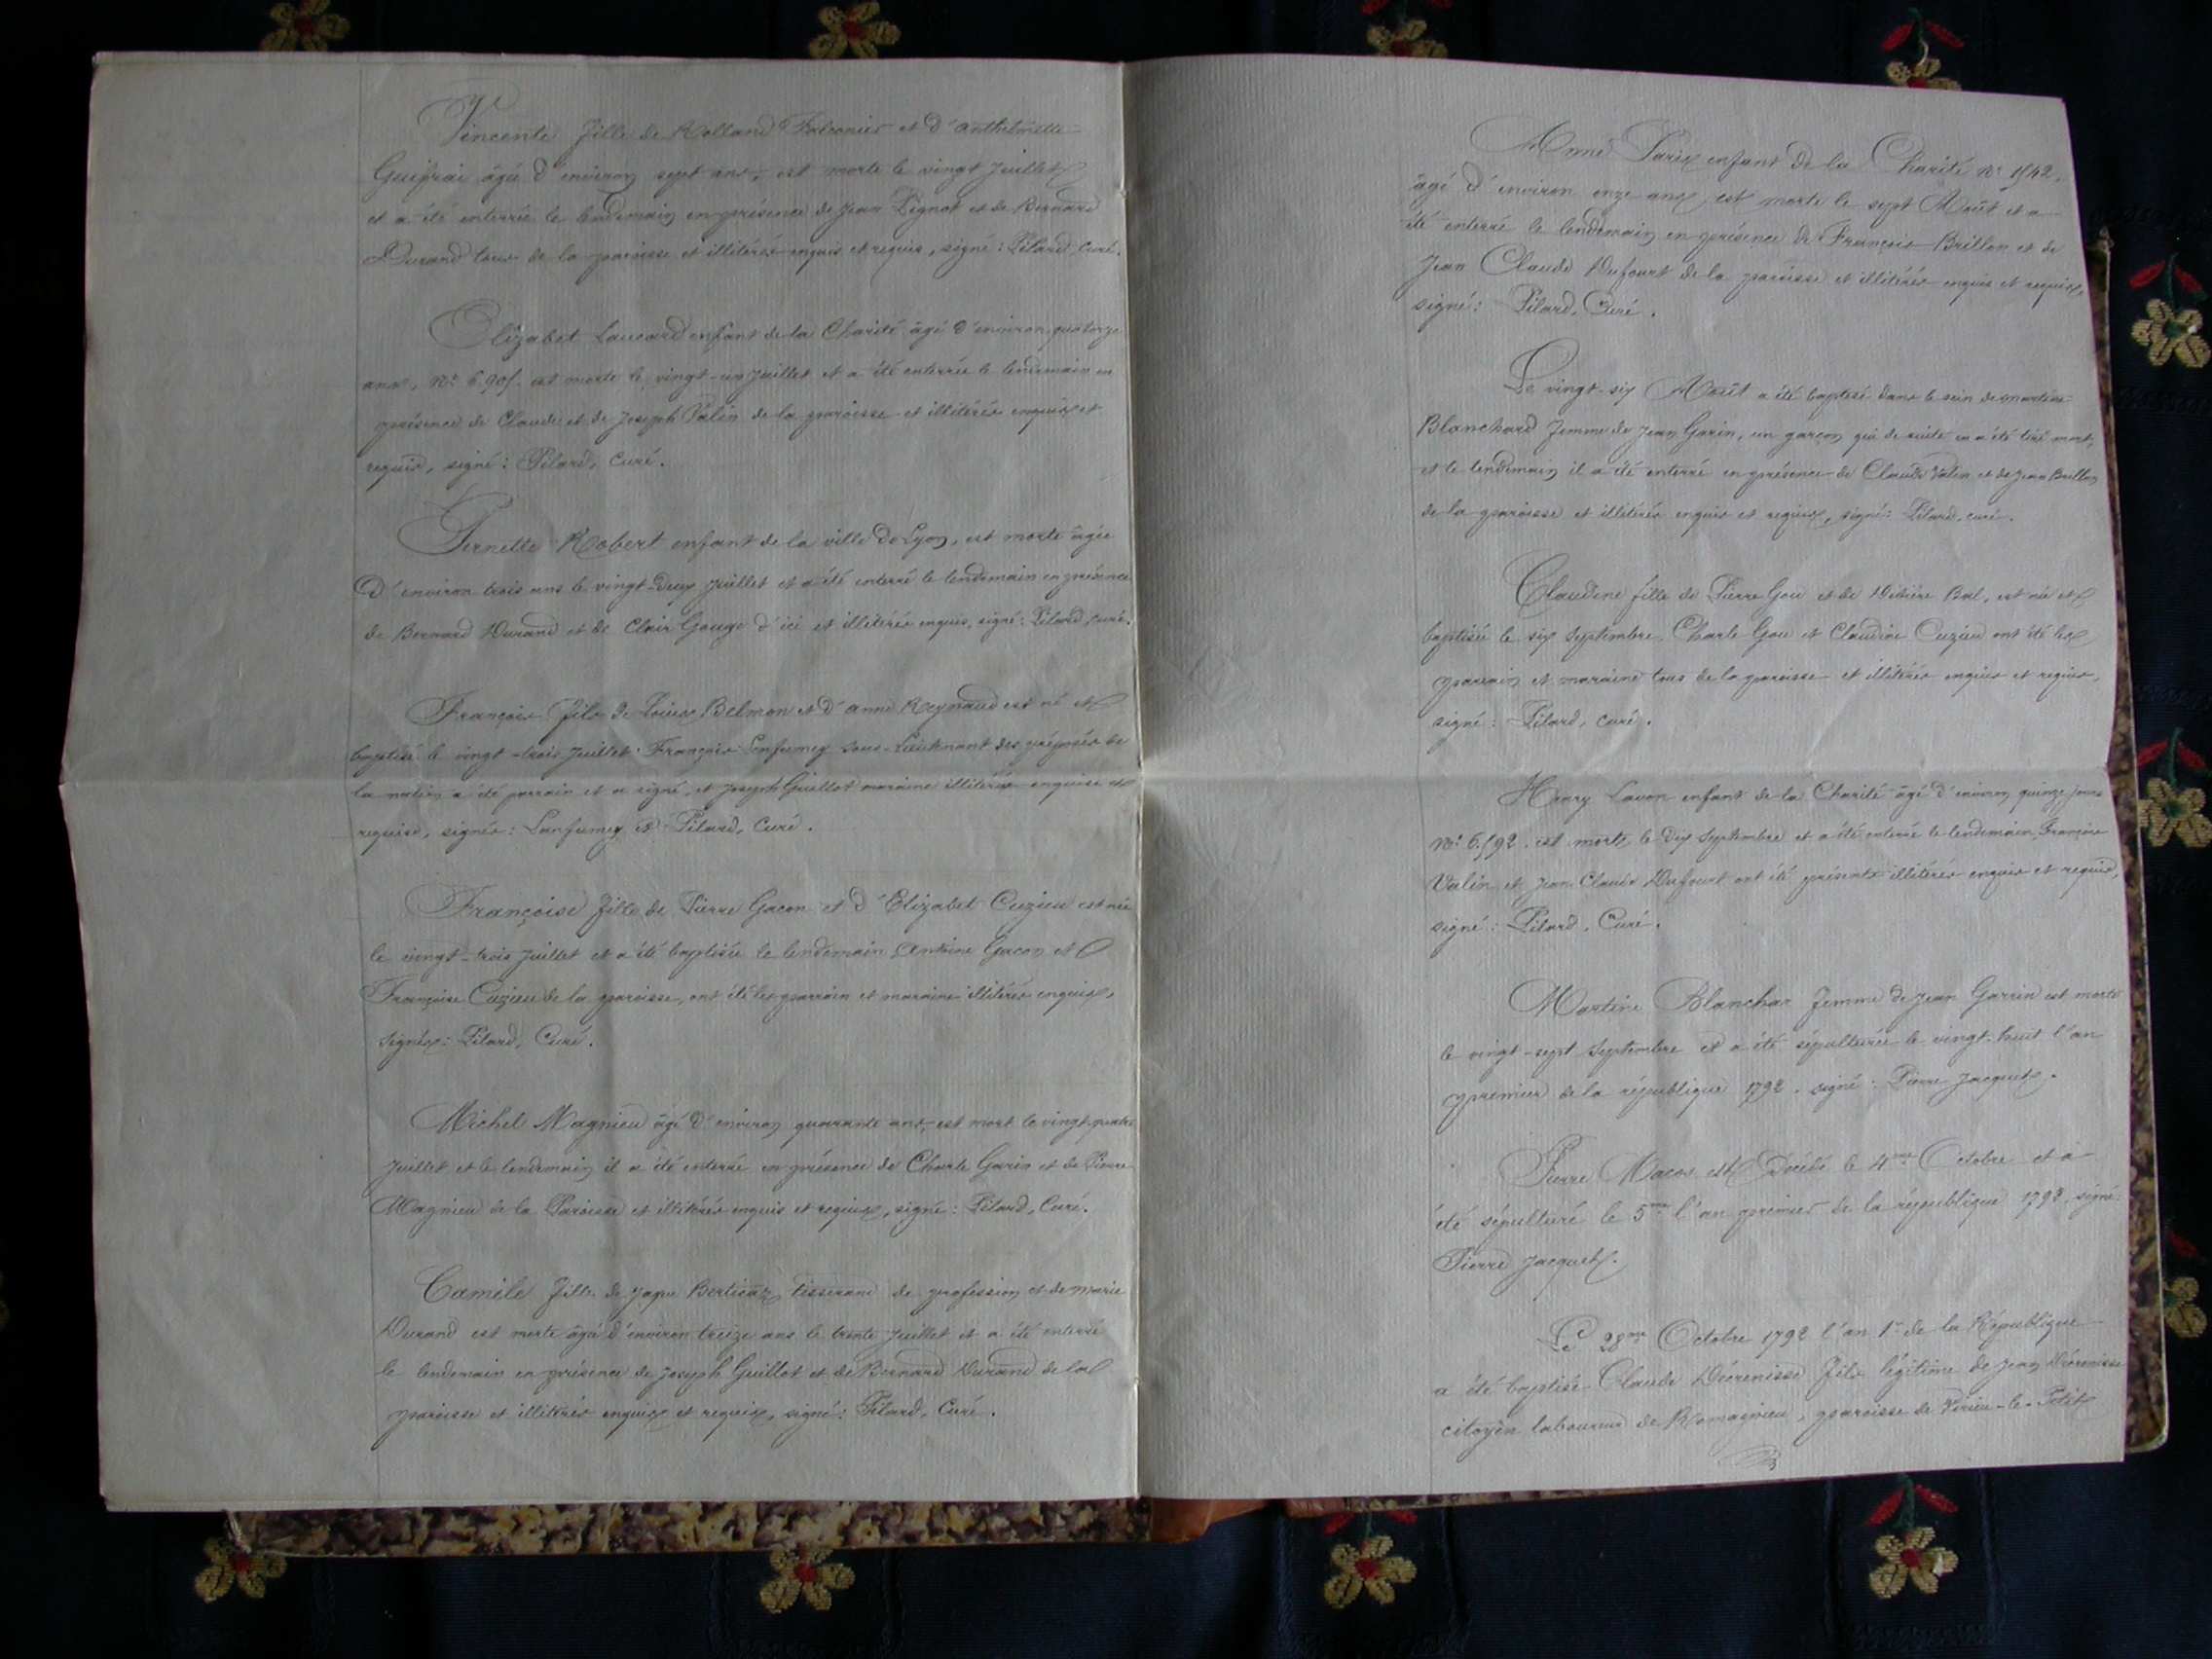 Vincente fille de Rolland Falconier et d'anthelmette
Guifrai âgée d'environ sept ans, est morte le vingt Juillet
et a été enterrée le lendemain en présence de Jean Pignot et de Bernard
Durand tous de la paroisse et illitérés enquis et requis, signé: Pilard, curé.
Elizabet Laucard enfant de la Charité âgé d'environ quatorze
ans, N° est morte le vingt-un Juillet et a été enterrée le lendemain en
présence de Claude et de Joseph Valin de la paroisse et illitérés enquis et
requis, signé: Pilard, Curé.
Pernette Robert enfant de la ville de Lyon, est morte âgée
d'environ trois ans le vingt-deux Juillet et a été enterré le lendemain en présence
de Bernard Durand et de Clair Gouge d'ici et illitérés enquis, signé: Pilard, curé.
François fils de Louis Belmon et d'anne Reynaud est né et
baptisé le vingt-trois Juillet. François Lanfumey Sous-Lieutenant des préposés de
la nation a été parrain et a signé, et Joseph Guillot maraine illitérée enquise et
requise, signés: Lanfumey et Pilard, Curé.
Françoise fille de Pierre Gacon et d'Elizabet Cuzieu est née
le vingt-trois Juillet et a été baptisée le lendemain Antoine Gacon et
Françoise Cuzieu de la paroisse, ont été les parrain et maraine illitérés enquis,
signés: Pilard, Curé.
Michel Magnieu âgé d'environ quarante ans, est mort le vingt-quatre
Juillet et le lendemain il a été enterré en présence de Charle Garin et de Pierre
Magnieu de la Paroisse et illitérés enquis et requis, signé: Pilard, Curé.
Camile fille de Bertieaz, tisserand de profession et de marie
Durand est morte âgée d'environ treize ans le trente Juillet et a été enterré
le lendemain en présence de Joseph Guillot et de Bernard Durand de la
paroisse et illitérés enquis et requis, signé: Pilard, Curé.
Anne Paris enfant de la Charité N° 1542,
âgé d'environ onze ans, est morte le sept Août et a
été enterré le lendemain en présence de François Brillon et de
Jean Claude Dufourt de la paroisse et illitérés enquis et requis,
signé: Pilard, Curé.
Le vingt-six Août a été baptisé dans le sein de martine
Blanchard femme de Jean Garin, un garçon qui de suite en a été tiré mort,
et le lendemain il a été enterré en présence de Claude Valin et de Jean Brillon
de la paroisse et illitérés enquis et requis, signé: Pilard, curé.
Claudine fille de Pierre Gou et de Bal, est née et
baptisée le six Septembre. Charle Gou et Claudine Cuzieu ont été les
parrain et maraine tous de la paroisse et illitérés enquis et requis,
signé: Pilard, curé.
Henry Lavon enfant de la Charité âgé d'environ quinze jours
N° 6592. est morte le Dix Septembre et a été enterré le lendemain, François
Valin et Jean Claude Dufourt ont été présents illitérés enquis et requis,
signé: Pilard, Curé.
Martine Blanchar femme de Jean Garrin est morte
le vingt-sept Septembre et a été sépulturée le vingt-huit l'an
premier de la république 1792. signé: Pierre Jacquet.
Pierre Macos est Décédé le 4me Octobre et a
été sépulturé le 5me l'an premier de la république 1792. signé:
Pierre Jacquet.
Le 28me Octobre 1792 l'an 1er de la République
a été baptisé Claude Décrenisse fils légitime de Jean Décrenisse
citoyen laboureur de Romagnieu, paroisse de Virieu-le-Petit